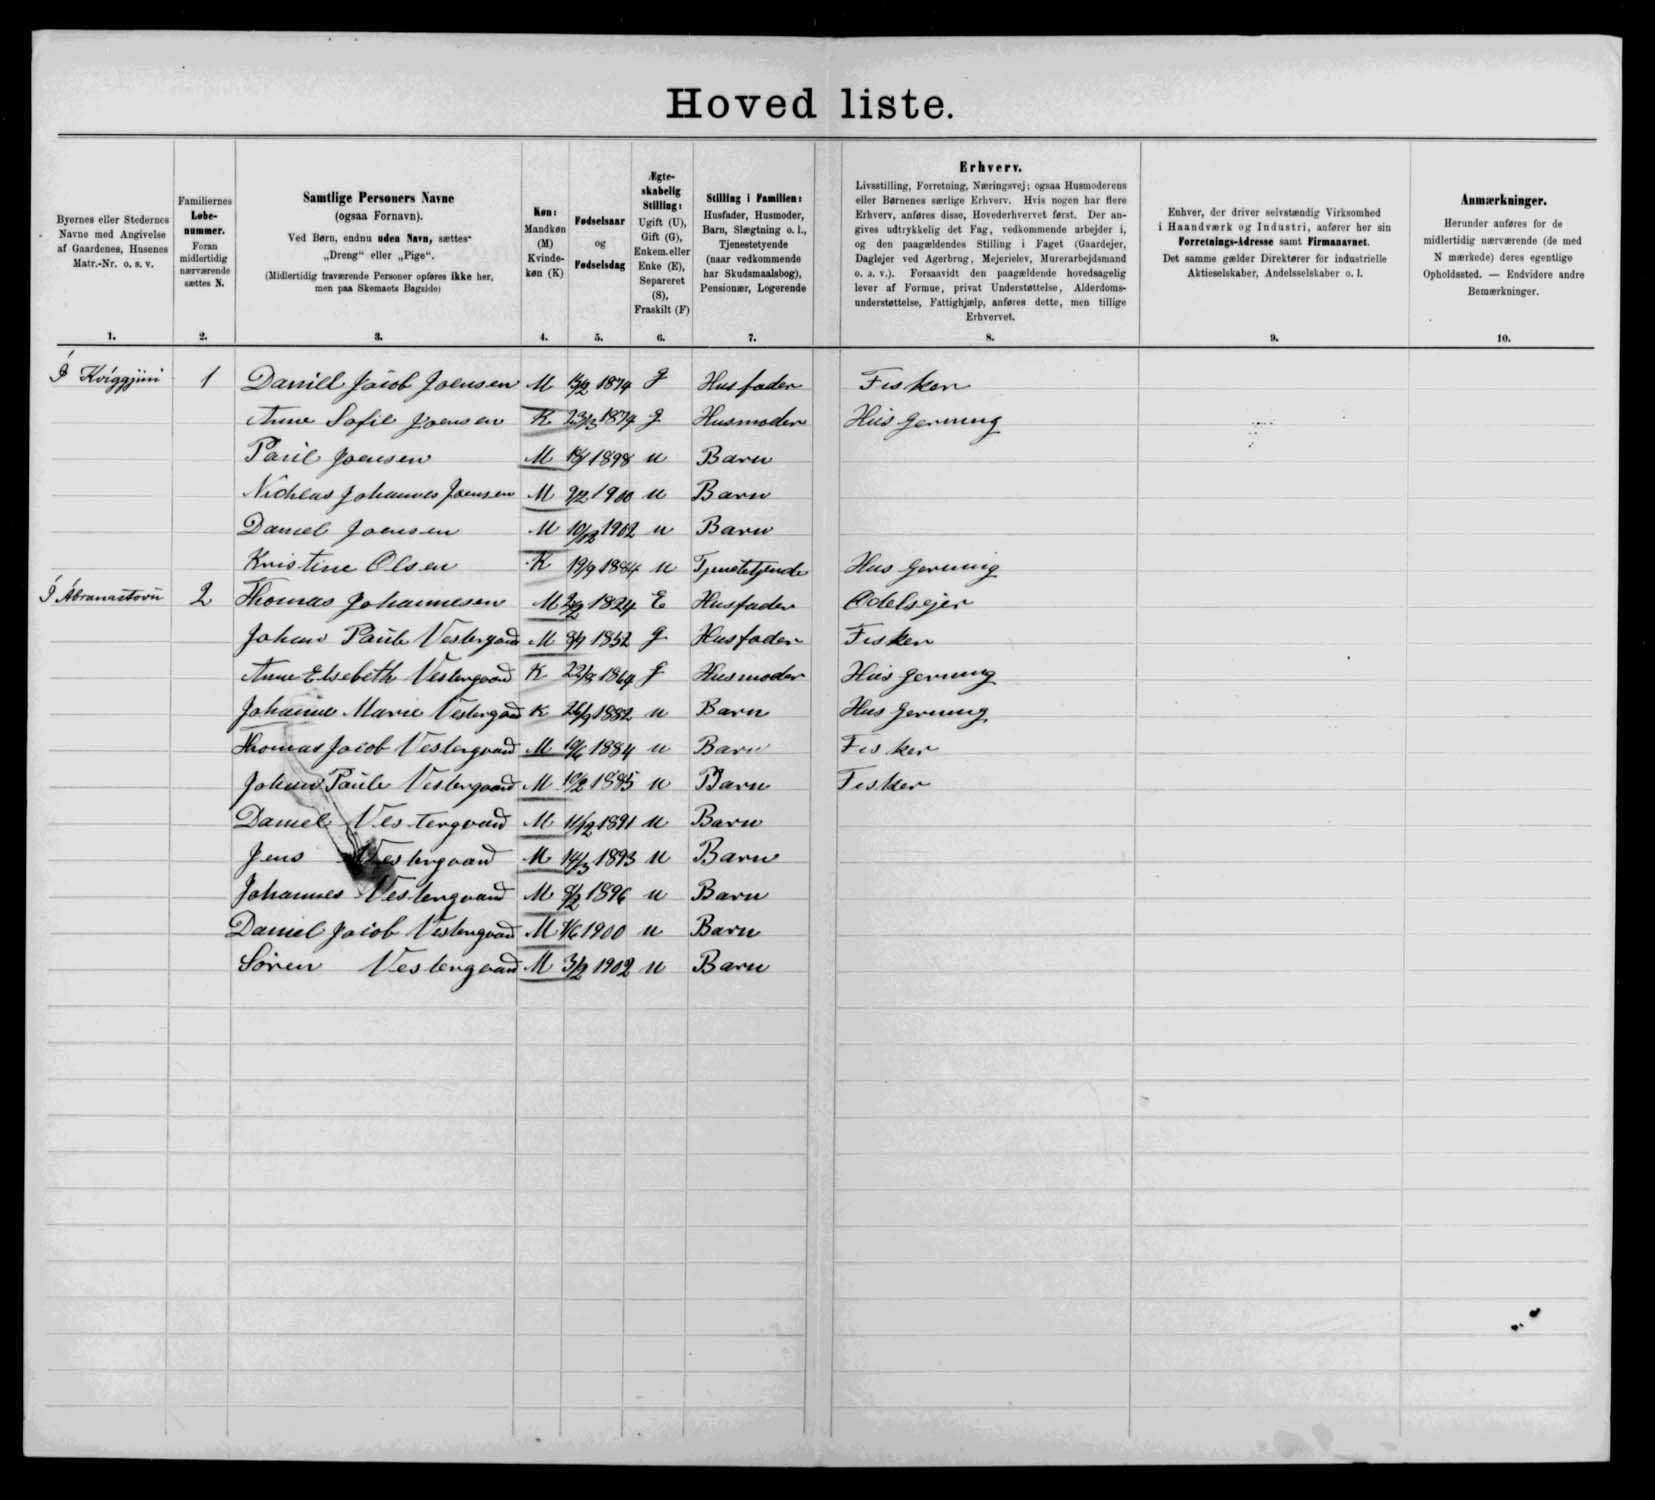 Hoved liste.
Byernes eller Stedernes
Navne med Angivelse
af Gaardenes, Husenes
Matr.-Nr. o. s. v.
1.
Familiernes
Løbe-
nummer.
Foran
midlertidig
nærværende
sættes N.
2.
Samtlige Personers Navne
(ogsaa Fornavn).
Ved Børn, endnu uden Navn, sættes
„Dreng“ eller „Pige“.
(Midlertidig fraværende Personer opføres ikke her,
men paa Skemaets Bagside)
3.
Køn:
Mandkøn
(M)
Kvinde-
køn (K)
4.
Fødselsaar
og
Fødselsdag
5.
Ægte-
skabelig
Stilling:
Ugift (U),
Gift (G),
Enkem.eller
Enke (E),
Separeret
(S),
Fraskilt (F)
6.
Stilling i Familien:
Husfader, Husmoder,
Barn, Slægtning o. l.,
Tjenestetyende
(naar vedkommende
har Skudsmaalsbog),
Pensionær, Logerende
7.
Erhverv.
Livsstilling, Forretning, Næringsvej; ogsaa Husmoderens
eller Børnenes særlige Erhverv. Hvis nogen har flere
Erhverv, anføres disse, Hovederhvervet først. Der an-
gives udtrykkelig det Fag, vedkommende arbejder i,
og den paagældendes Stilling i Faget (Gaardejer,
Daglejer ved Agerbrug, Mejerielev, Murerarbejdsmand
o. a. v.). Forsaavidt den paagældende hovedsagelig
lever af Formue, privat Understøttelse, Alderdoms-
understøttelse, Fattighjælp, anføres dette, men tillige
Erhvervet.
8.
Enhver, der driver selvstændig Virksomhed
i Haandværk og Industri, anfører her sin
Forretnings-Adresse samt Firmanavnet.
Det samme gælder Direktører for industrielle
Aktieselskaber, Andelsselskaber o. l.
9.
Anmærkninger.
Herunder anføres for de
midlertidig nærværende (de med
N mærkede) deres egentlige
Opholdssted. — Endvidere andre
Bemærkninger.
10.
Í Kviggjini 1 Daniel Jacob Joensen M 1874 g Husfader Fisker
Anne Sofie Joensen K 1874 g Husmoder Husgerning
Paul Joensen M 1898 u Barn
Nicklas Johannes Joensen M 1900 u Barn
Daniel Joensen M 1902 u Barn
Kristine Olsen K 19/9 1884 u Tjenestetyende Husgerning
Í Ábranastovu 2 Thomas Johannesen M 1824 E Husfader Odelsejer
Johan Paule Vestergaard M 1852 g Husfader Fisker
Anne Elsebeth Vestergaard K 22/8 1864 g Husmoder Husgerning
Johanne Marie Vestergaard K 1882 u Barn Husgerning
Thomas Jacob Vestergaard M 1884 u Barn Fisker
Johan Paule Vestergaard M 1885 u Barn Fisker
Daniel Vestergaard M 11/2 1891 u Barn
Jens Vestergaard M 14/3 1893 u Barn
Johannes Vestergaard M 1896 u Barn
Daniel Jacob Vestergaard M 1900 u Barn
Søren Vestergaard M 3/2 1902 u Barn